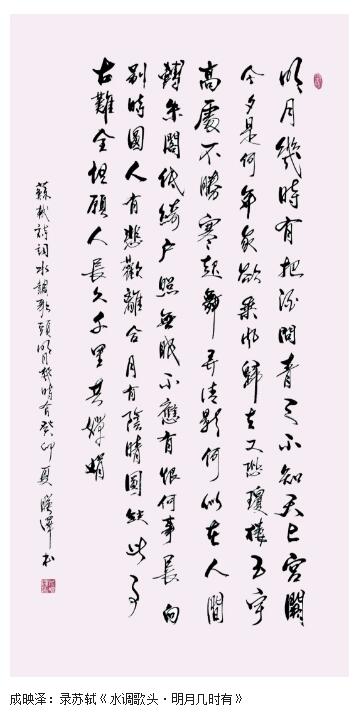 明月幾時有把酒問青天不知天上宮闕
今夕是何年我欲乘風歸去又恐瓊樓玉宇
高處不勝寒起舞弄清影何似在人間
轉朱閣低綺户照無眠不應有恨何事長向
别時圓人有悲歡離合月有陰晴圓缺此事
古難全但願人長久千里共嬋娟
蘇軾詩詞水調歌頭明月幾時有癸卯夏映澤書
成映泽：录苏轼《水调歌头·明月几时有》